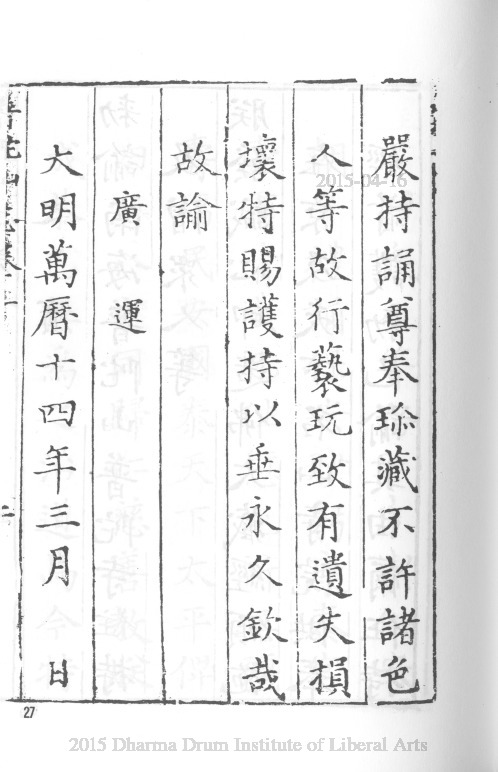 嚴持誦尊奉珎藏不許諸色
人等故行褻玩致有遺失損
壞特賜護持以垂永久欽哉
故諭
廣運
大明萬曆十四年三月 日
27
2015-04-16
2015 Dharma Drum Institute of Liberal Arts